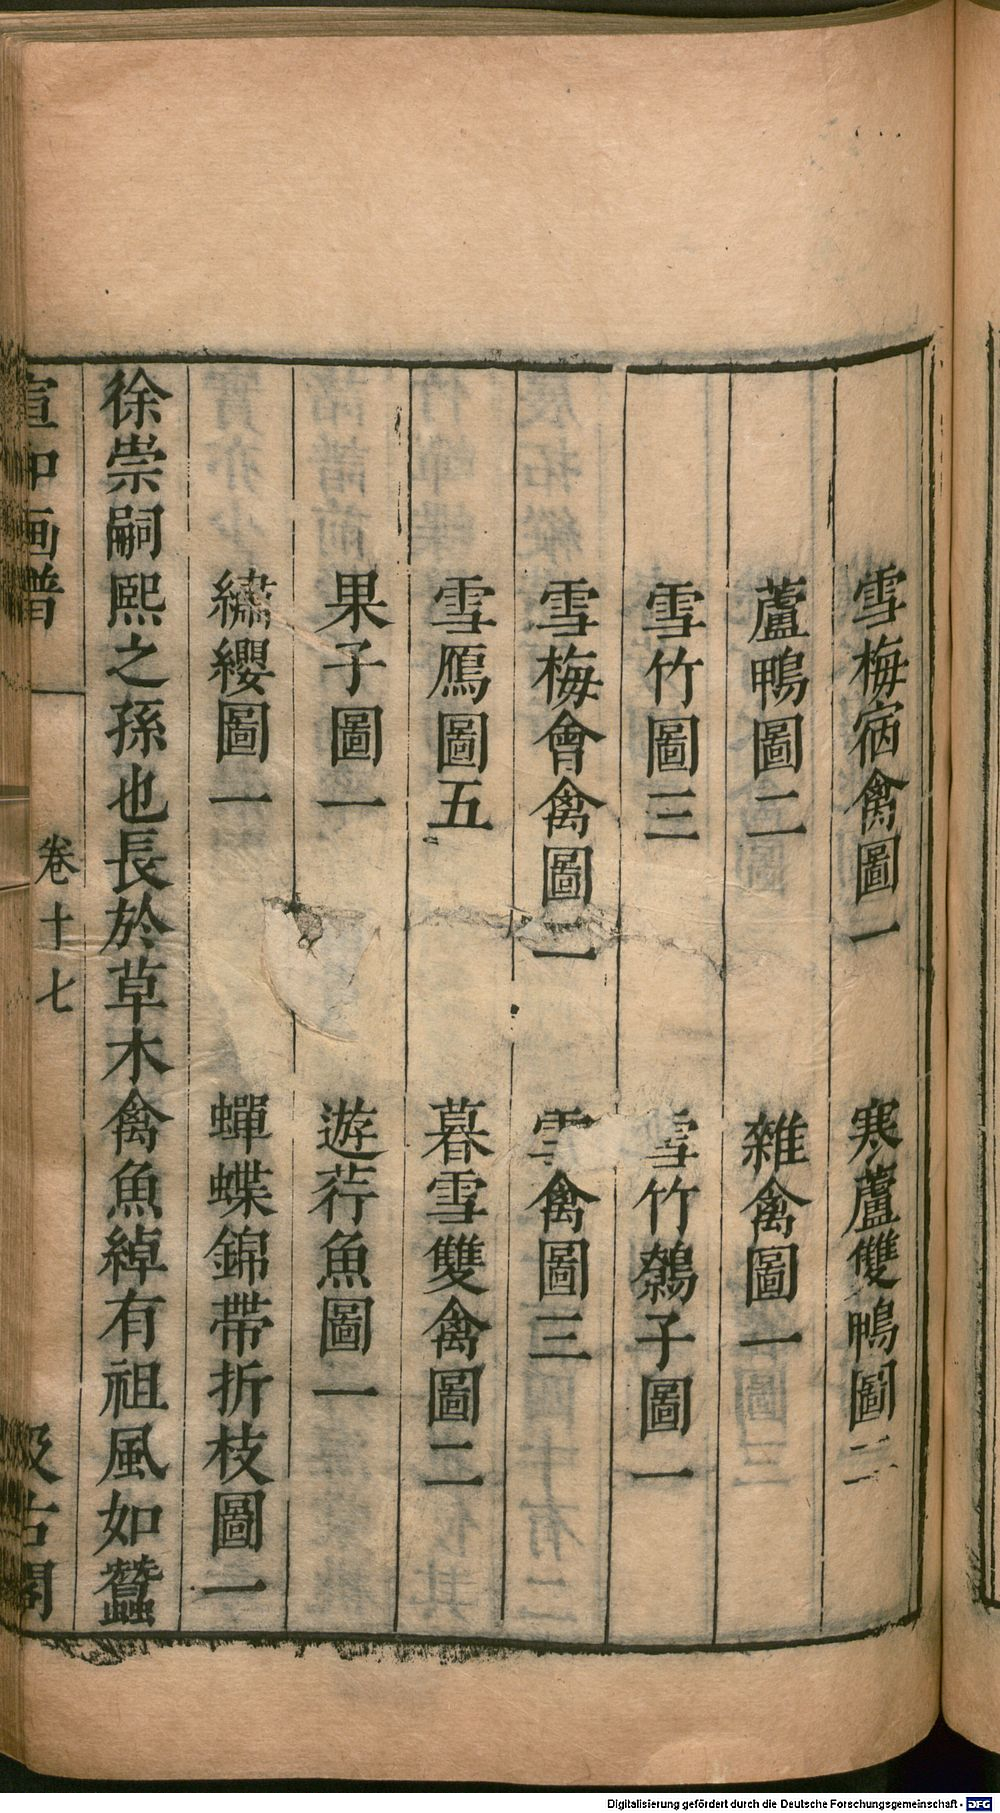 雪梅宿禽圖一　寒蘆雙鴨圖二
蘆鴨圖二　雜禽圖一
雪竹圖三　雪竹鵓子圖一
雪梅會禽圖二　雪禽圖三
雪鴈圖五　暮雪雙禽圖二
果子圖一　遊荇魚圖一
繡纓圖一　蟬蝶錦帶折枝圖一
徐崇嗣熙之孫也長於草木禽魚綽有祖風如蠶
宣和画譜　卷十七　汲古閣
Digitalisierung gefördert durch die Deutsche Forschungsgemeinschaft - DFG